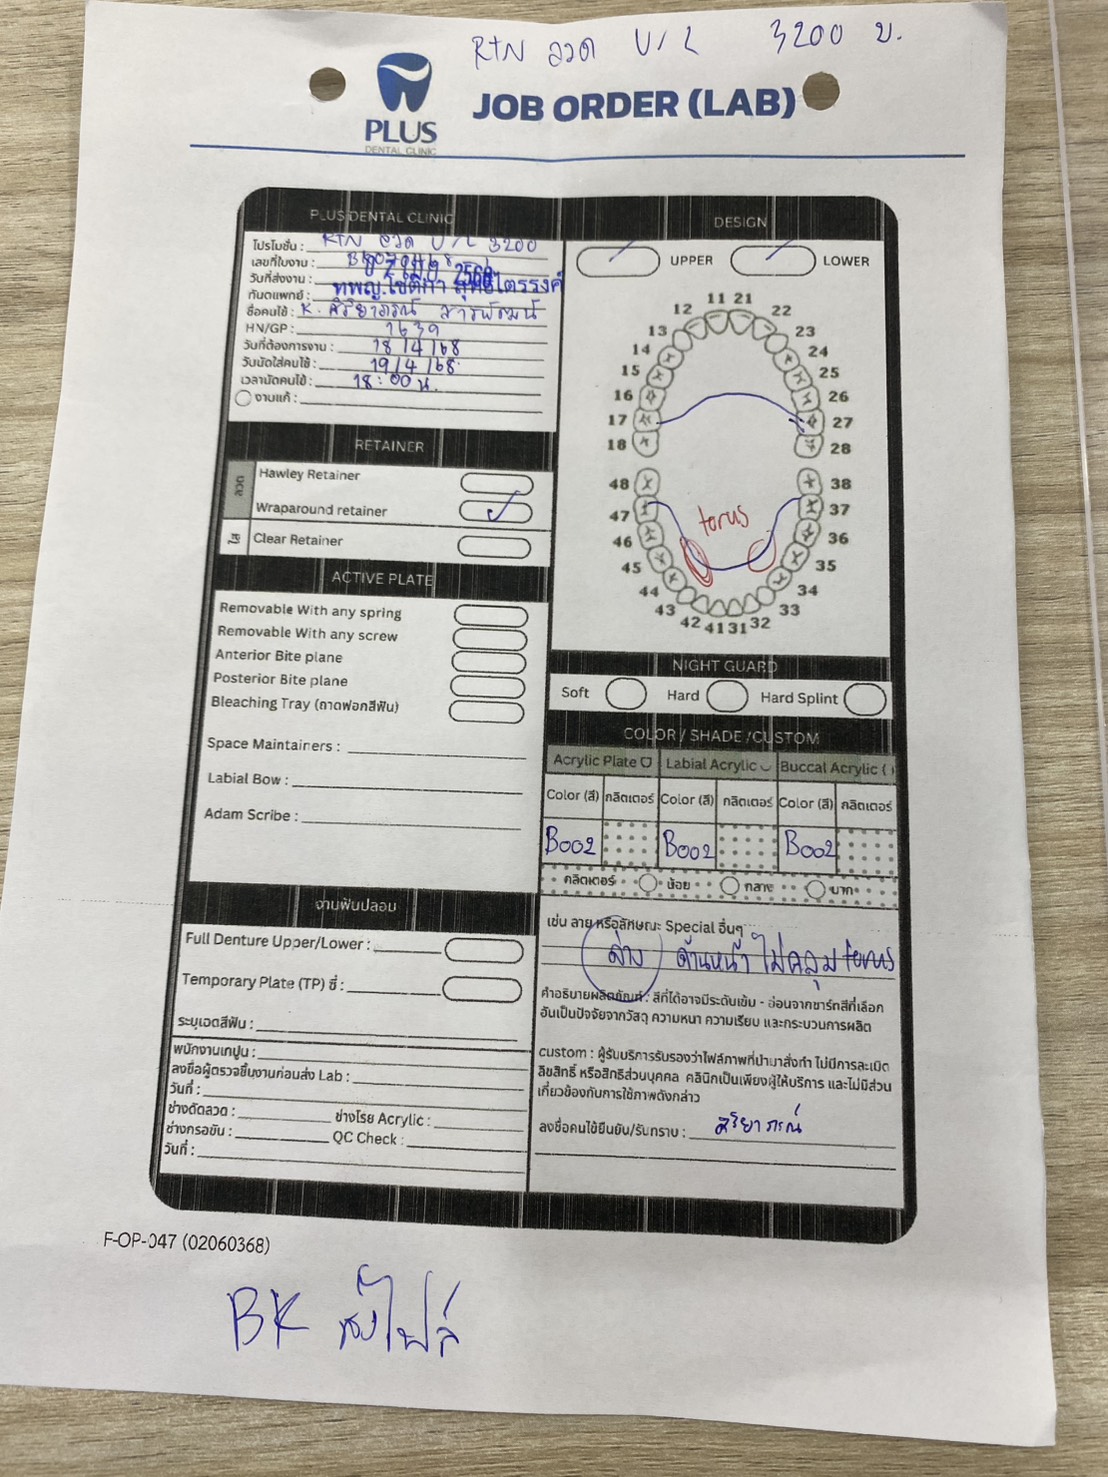 RTN ลวด U/L 3200 บ.
PLUS
DENTAL CLINIC
JOB ORDER (LAB)
PLUS DENTAL CLINIC
โปรโมชั่น : RTN ลวด U/L 3200
เลขที่ใบงาน :
วันที่ส่งงาน : 2568
ทันตแพทย์ : ทพญ.โชติกา สุทธิไตรรงค์
ชื่อคนไข้ : K. ศิริยาภรณ์ สารพัฒน์
HN/GP : 1639
วันที่ต้องการงาน : 18/4/68
วันนัดใส่คนไข้ : 19/4/68
เวลานัดคนไข้ : 18:00 น.
งานแก้ :
RETAINER
ลวด
Hawley Retainer
Wraparound retainer
ใส
Clear Retainer
ACTIVE PLATE
Removable With any spring
Removable With any screw
Anterior Bite plane
Posterior Bite plane
Bleaching Tray (ถาดฟอกสีฟัน)
Space Maintainers :
Labial Bow :
Adam Scribe :
งานฟันปลอม
Full Denture Upper/Lower :
Temporary Plate (TP) ซี่ :
ระบุเฉดสีฟัน :
พนักงานเทปูน :
ลงชื่อผู้ตรวจชิ้นงานก่อนส่ง Lab :
วันที่ :
ช่างดัดลวด : ช่างโรย Acrylic :
ช่างกรอขัด : QC Check :
วันที่ :
DESIGN
UPPER LOWER
11 21
12 22
13 23
14 24
15 25
16 26
17 27
18 28
48 38
47 37
torus
46 36
45 35
44 34
43 33
42 41 31 32
NIGHT GUARD
Soft Hard Hard Splint
COLOR / SHADE /CUSTOM
Acrylic Plate Labial Acrylic Buccal Acrylic ( )
Color (สี) กลิตเตอร์ Color (สี) กลิตเตอร์ Color (สี) กลิตเตอร์
B002 B002 B002
กลิตเตอร์ น้อย กลาง มาก
เช่น ลาย หรือลักษณะ Special อื่นๆ
ล่าง ด้านหน้า ไม่คลุม torus
คำอธิบายผลิตภัณฑ์ : สีที่ได้อาจมีระดับเข้ม - อ่อนจากชาร์ทสีที่เลือก
อันเป็นปัจจัยจากวัสดุ ความหนา ความเรียบ และกระบวนการผลิต
custom : ผู้รับบริการรับรองว่าไฟล์ภาพที่นำมาสั่งทำ ไม่มีการละเมิด
ลิขสิทธิ์ หรือสิทธิส่วนบุคคล คลินิกเป็นเพียงผู้ให้บริการ และไม่มีส่วน
เกี่ยวข้องกับการใช้ภาพดังกล่าว
ลงชื่อคนไข้ยืนยัน/รับทราบ : ศิริยาภรณ์
F-OP-047 (02060368)
BK ส่งไฟล์